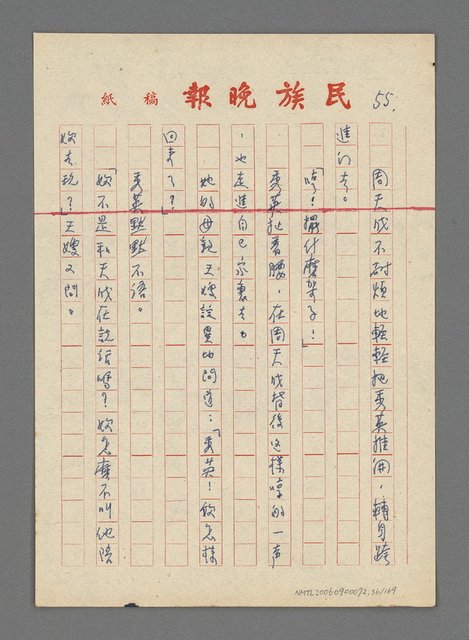 民族晚報 稿紙
55.
周天成不耐煩地輕輕把秀英推開,轉身跨
進門去。
「哼!擺什麼架子!」
秀英扭着腰,在周天成背後這樣哼的一聲
,也走進自己家裏去。
她的母親天嫂詫異地問道:「秀英!飲怎樣
回來了?」
秀英默默不語。
「妳不是和天成在說話嗎?妳怎麼不叫他陪
妳去玩?」天嫂又問。
NMTL20060900072.56/169